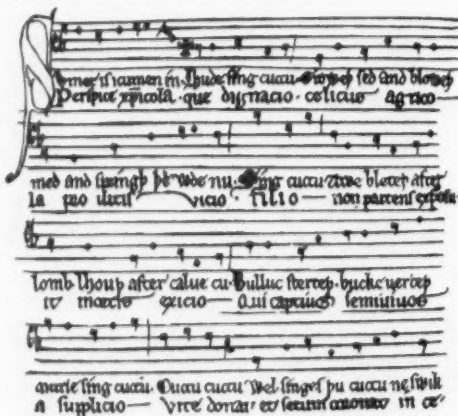 Sumer is icumen in. Lhude sing cuccu. Groweþ sed and bloweþ
Perspice xp̄icola. que dignacio. celicus agrico
med and springþ þe wde nu. Sing cuccu Awe bleteþ after
la pro uitis vicio. filio non parcens exposu
lomb lhouþ after calue cu. Bulluc sterteþ. bucke uerteþ
it mortis exicio Qui captiuos semiuiuos
murie sing cuccu. Cuccu cuccu Wel singes þu cuccu ne swik
a supplicio Vite donat et secum coronat in ce